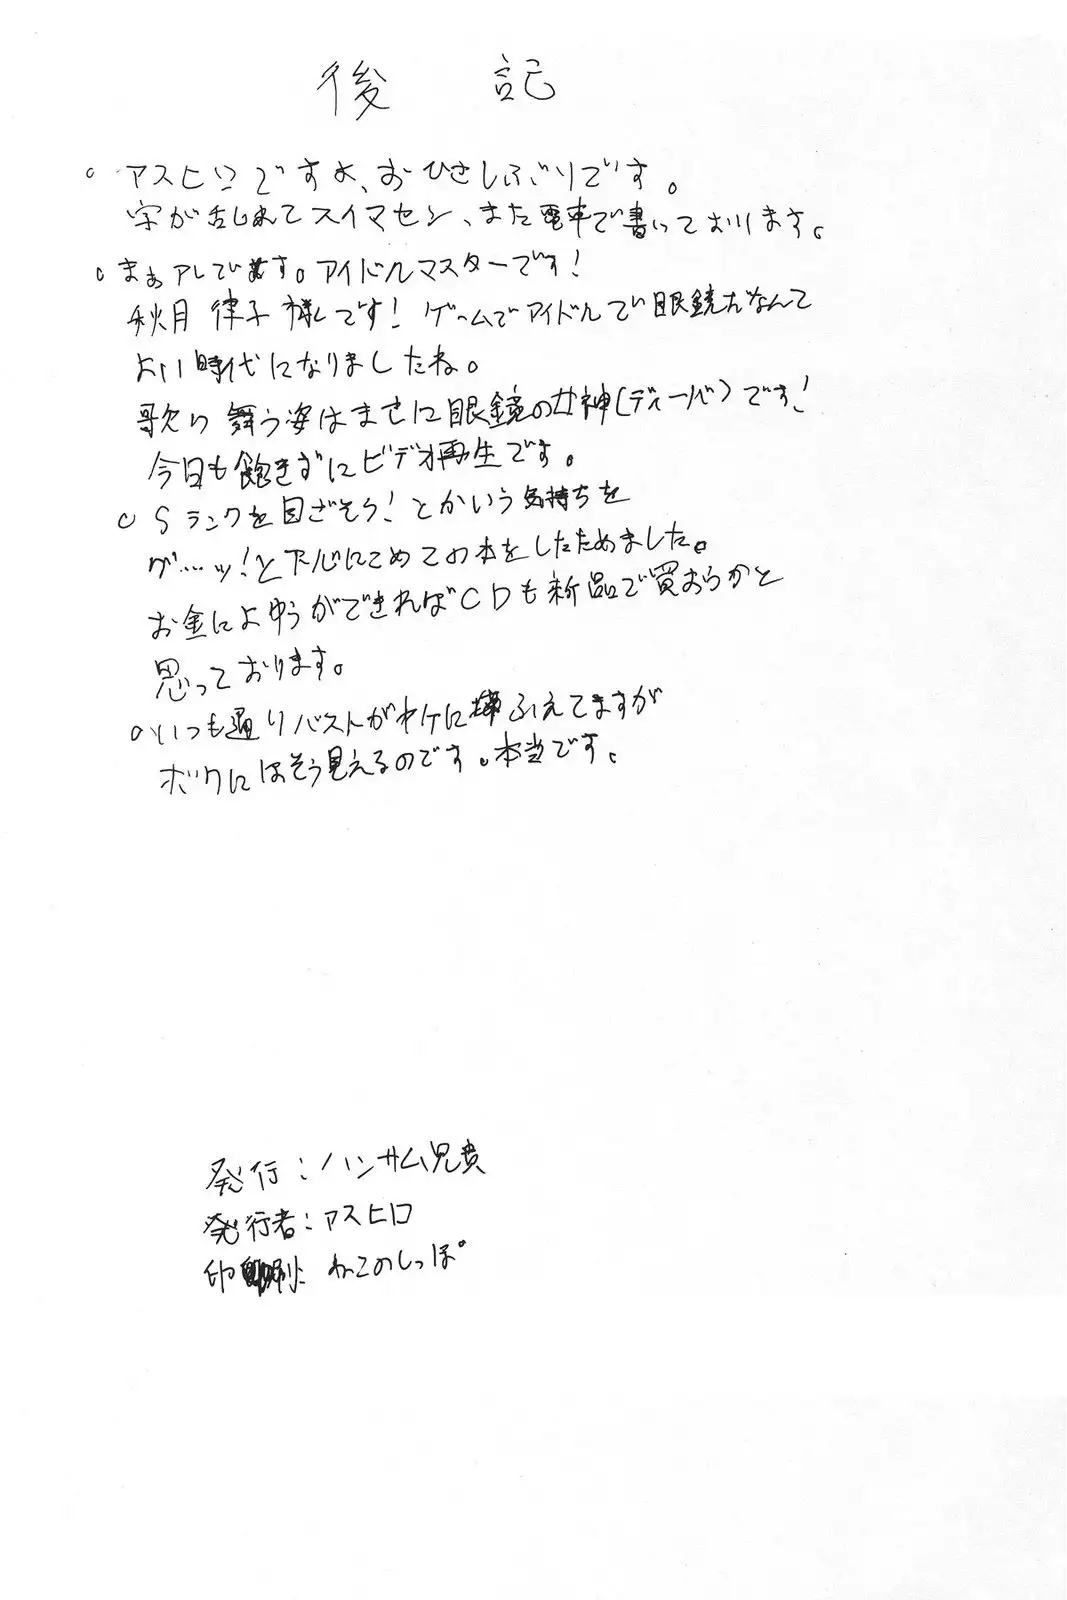 後記
。アスヒロですよ、おひさしぶりです。
字が乱れてスイマセン、また電車で書いております。
。まぁアレでます。アイドルマスターです!
秋月律子様です! ゲームでアイドルで眼鏡だなんて
よい時代になりましたね。
歌い舞う姿はまさに眼鏡の女神(ディーバ)です!
今日も飽きずにビデオ再生です。
。Sランクを目ざそう!とかいう気持ちを
グ…ッ!と下心にこめてこの本をしたためました。
お金によゆうができればCDも新品で買おうかと
思っております。
。いつも通りバストがヤケにふえてますが
ボクにはそう見えるのです。本当です。
発行:ハンサム兄貴
発行者:アスヒロ
印刷:ねこのしっぽ